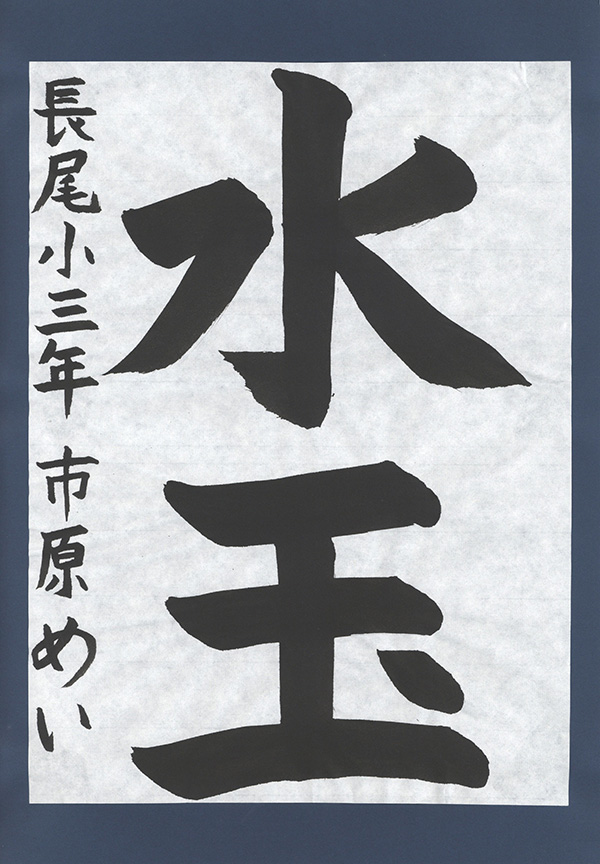 水玉
長尾小三年 市原めい